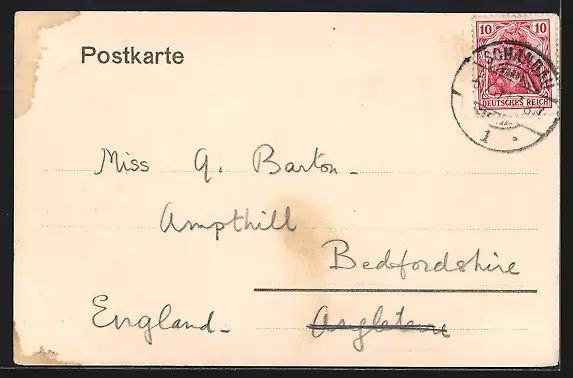 Postkarte
10 10
DEUTSCHES REICH
SCHANDAU
1
Miss G. Barton -
Ampthill
Bedfordshire
England - Angleterre